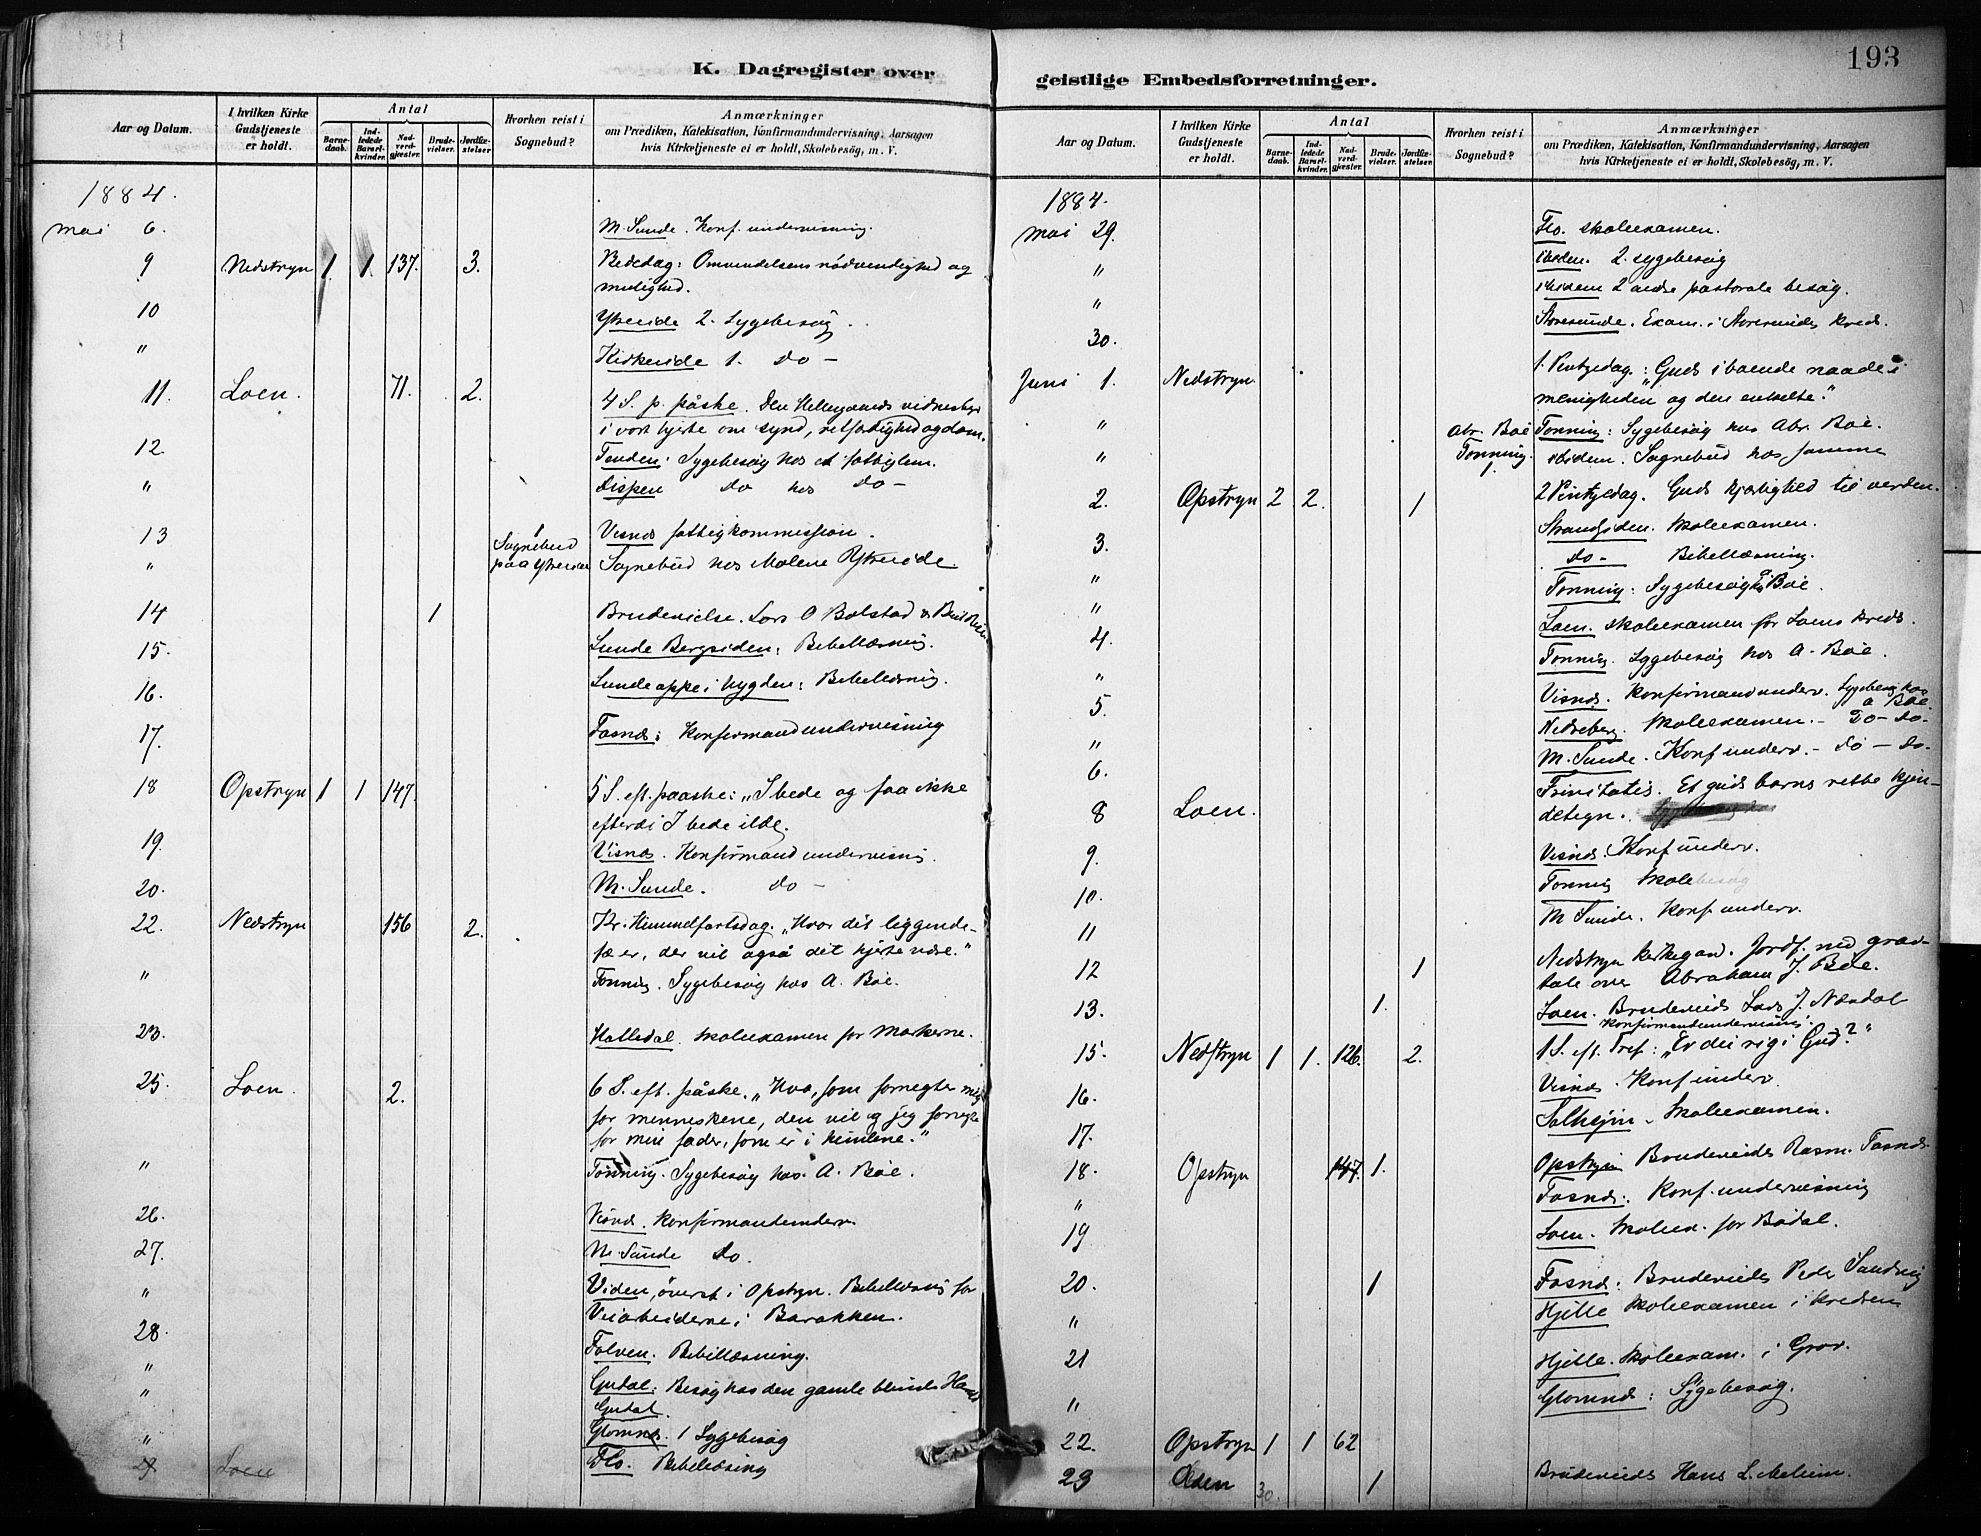 K. Dagregister over
Aar og Datum. I hvilken Kirke Gudstjeneste er holdt. Antal Barnedaab. Indledede Barselkvinder. Nadverdgjæster. Brudevielser. Jordfæstelser Hvorhen reist i Sognebud? Anmærkninger
om Prædiken, Katekisation, Konfirmandundervisning, Aarsagen
hvis Kirketjeneste ei er holdt, Skolebesög, m. V.
1884.
mai 6. M. Sunde. Konf. undervisning.
9 Nedstryn 1 1. 137. 3. Bededag: Omvendelsens nødvendighed og
mulighed.
10 Ytreeide 2. Sygebesøg.
" Kirkeeide 1. do –
11. Loen. 71. 2. 4 S. p. påske. Den Helligaands vidnesbyr
i vort hjerte om synd, retfærdighed og dom.
12. Tenden: Sygebesøg hos et fattiglem.
" Dispen do hos do –
13 Visnes fattigkommission.
" 1 Sognebud paa Ytreeide Sognebud hos Malene Ytreeide.
14 1 Brudevielse. Lars O Bolstad &
15. Sunde Bergsiden: Bibellæsning.
16. Sunde oppe i bygden: Bibellæsning.
17. Fosnes: Konfirmandundervisning
18 Opstryn 1 1 147. 5 S. eft. paaske: „I bede og faa ikke
efterdi I bede ilde.
19. Visnes. Konfirmandundervisning.
20. M. Sunde. do –
22. Nedstryn 156 2. Kr. Himmelfartsdag. „Hvor dit liggende-
fæ er, der vil også dit hjerte være."
" Tonning. Sygebesøg hos A. Böe.
23. Halledal. Skoleexamen for Markerne.
25. Loen. 2. 6 S. eft. påske. „Hvo, som fornegter mig
for menneskene, den vil og jeg fornegte
for min fader, som er i himlene."
" Tonning. Sygebesøg hos A. Böe.
26. Visnes. Konfirmandunderv.
27. M. Sunde do.
" Viden, överst i Opstryn. Bibellæsnig for
Veiarbeiderne i Barakken.
28. Folven. Bibellæsning.
" Gudal: Besøg hos den gamle blinde Hans
" Gudal.
" Glomnes. 1 Sygebesøg
29 Loen Flo. Bibellæsning
193
geistlige Embedsforretninger.
Aar og Datum. I hvilken Kirke Gudstjeneste er holdt. Antal Barnedaab. Indledede Barselkvinder. Nadverdgjæster. Brudevielser. Jordfæstelser. Hvorhen reist i Sognebud? Anmærkninger
om Prædiken, Katekisation, Konfirmandundervisning, Aarsagen
hvis Kirketjeneste ei er holdt, Skolebesög, m. V.
1884.
Mai 29. Flo. skoleexamen.
" ibidem. 2. sygebesøg
" ibidem 2 andre pastorale besøg.
30. Storesunde. Exam. i Storesundes kreds.
Juni 1. Nedstryn 1. Pintsedag: „Guds iboende naade i
menigheden og den enkelte."
" Abr. Böe Tonning: Sygebesøg hos Abr. Böe.
" Tonning. 1 ibidem. Sognebud hos samme
2. Opstryn 2 2. 1 2 Pintsedag. Guds kjærlighed til verden.
3. Strandsiden. Skoleexamen.
" do – Bibellæsning.
" Tonning: Sygebesøg Böe.
4. Loen. skoleexamen for Loens kreds.
" Tonning. Sygebesøg hos A. Böe.
5. Visnes. Konfirmandunderv. Sygebesøg hos A Böe.
" Nedreberg. Skoleexamen. – Do – do.
6. M. Sunde. Konf underv. – do – do.
8 Loen. Trinitatis. Et guds barns rette kjen-
detegn.
9. Visnes. Konf underv.
10. Tonning Skolebesøg
11 M Sunde. Konf underv.
12 1 Nedstryn kirkegård. Jordf. med grav-
tale over Abraham J. Böe.
13. 1. Loen. Brudevieds Lars J. Næsdal
Konfirmandundervisning.
15. Nedstryn 1 1. 126. 2. 1 S. eft. Tref: „Er du rig i Gud?"
16. Visnes. Konf underv.
17. Solheim. Skoleexamen.
18. Opstryn 147. 1. Opstryn Brudevieds Rasm. Fosnes
" Fosnes. Konf. undervisning
19 Loen. Skoleex. for Bødal.
20. 1 Fosnes: Brudevieds Peder Sandvig
" Hjelle Skoleexamen i kredsen
21 Hjelle. Skoleexam. i Grov.
" Glomnes: Sygebesøg.
22. Opstryn 1 1 62
23 Olden 30. 1 Brudevieds Hans L. Melheim.